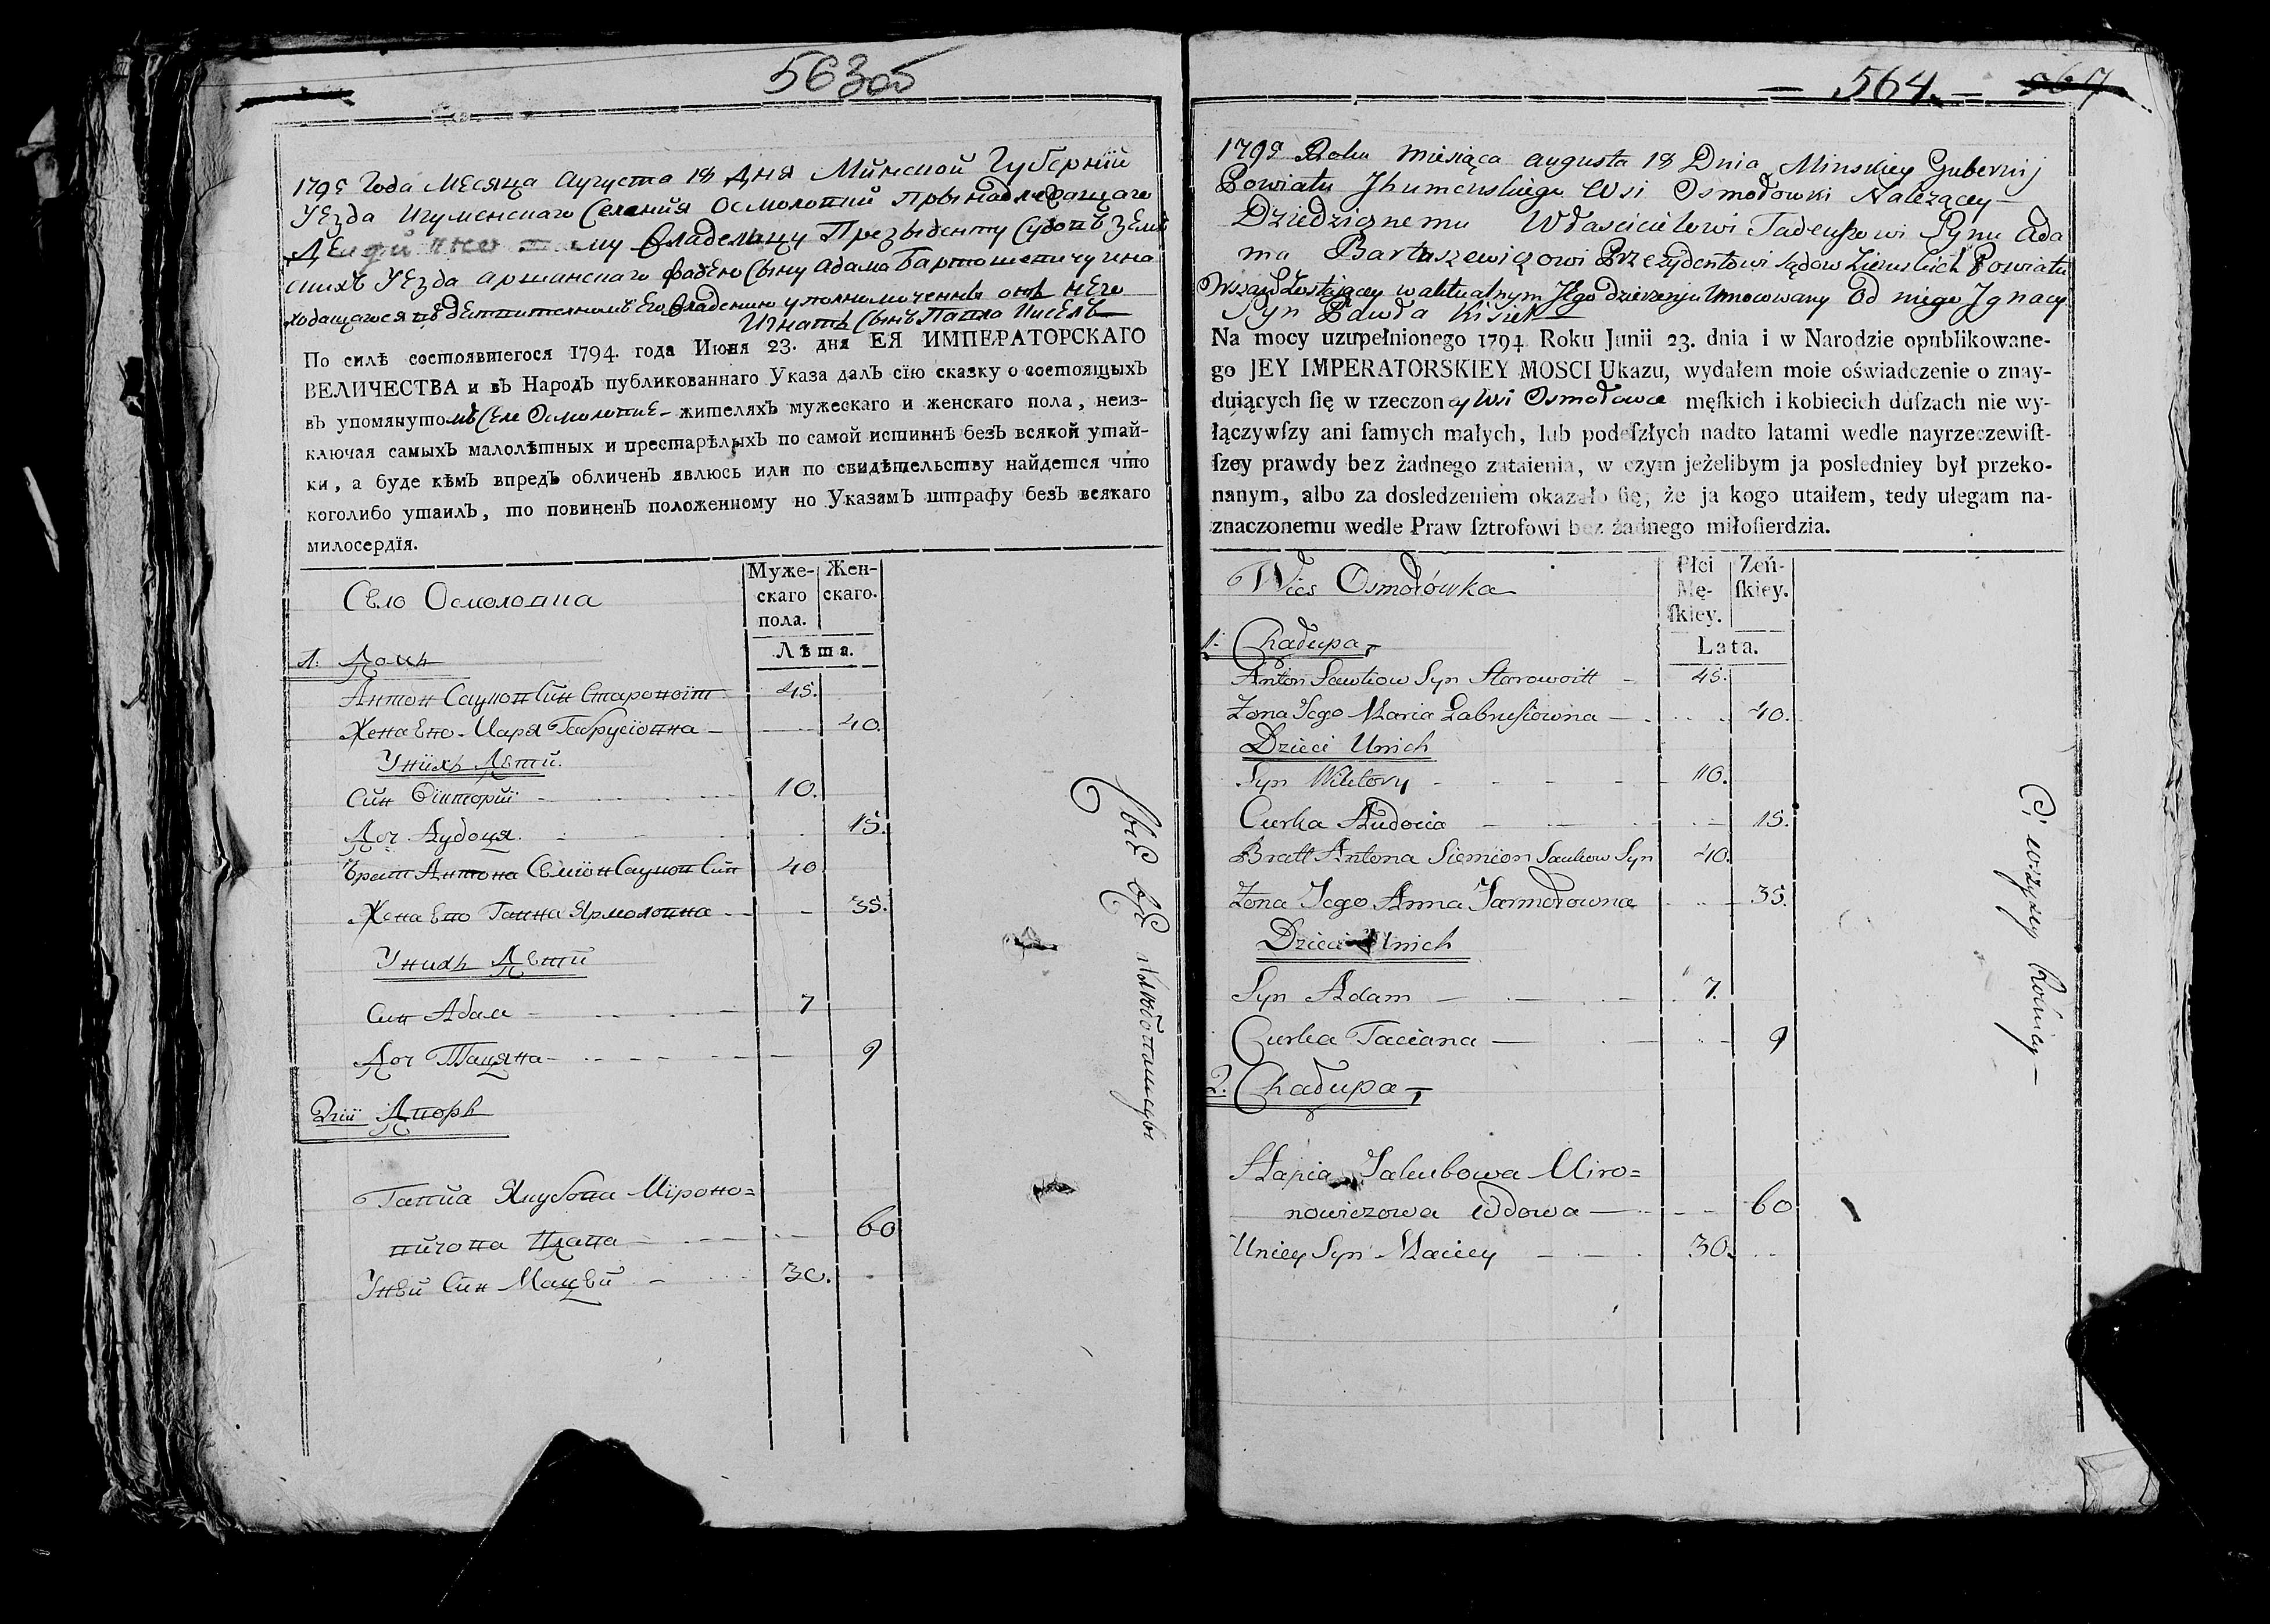 563об
1795 Года Месяца Аугуста 18 дня Минской Губернїи
Уезда Игуменскаго Селения Осмоловки прынадлежащаго
Владельцу Презыденту Судовъ Зем
скихъ Уезда Аршанскаго Фадею Сыну Адама Бартошевичу уна
ходящагося въ Действителномъ Его Владению уполномоченны отъ Него
Игнатъ Сынъ Павла Кисель
По силѣ состоявшегося 1794. года Июня 23. дня ЕЯ ИМПЕРАТОРСКАГО
ВЕЛИЧЕСТВА и въ Народъ публикованнаго Указа далъ сїю сказку о состоящыхъ
въ упомянутомъ Селе Осмоловке жителяхъ мужескаго и женскаго пола, неиз-
ключая самыхъ малолѣтных и престарѣлыхъ по самой истиннѣ безъ всякой утай-
ки, а буде кѣмъ впредъ обличенъ явлюсь или по свидѣтельству найдется что
коголибо утаилъ, то повиненъ положенному по Указамъ штрафу безъ всякаго
милосердїя.
Село Осмоловка
Муже-
скаго
пола.
Жен-
скаго.
Лѣта.
1. Домъ
Антон Сауков Син Старовойт 45.
Жена Его Маря Габрусіовна 40.
Униїхъ Дети
Син Віктори 10.
Доч Аудоця 15.
Брат Антона Семїон Сауков Син 40
Жена Его Ганна Ярмоловна 35.
Унихъ Дети
Син Адам 7
Доч Тацяна 9
2гій Дворъ
Гапка Якубова Міроно=
вичова Вдава 60
Уней Син Мацей 30.
Вси Въсе
564. 567
1795 Roku Miesiąca Augusta 18 Dnia Minskiey Gubernij
Powiatu Jhumenskiego Wsi Osmołowki Nalezącey
Dziedzicznemu Włascicielowi Tadeuszowi Synu Ada
ma Bartaszewiczowi Prezydentowi Sądow Ziemskich Powiatu
Orszan Zostaiącey w aktualnym Jego dzierzeniu Umocowany Od niego Jgnacy
Syn Pawła Kisiel
Na mocy uzupełnionego 1794 Roku Junii 23. dnia i w Narodzie opublikowane-
go JEY IMPERATORSKIEY MOSCI Ukazu, wydałem moie oświadczenie o znay-
duiących ſię w rzeczoney Wsi Osmołowce męſkich i kobiecich duſzach nie wy-
łączywſzy ani ſamych małych, lub podeſzłych nadto latami wedle nayrzeczewiſt-
ſzey prawdy bez żadnego zataienia, w czym jeżelibym ja posledniey był przeko-
nanym, albo za dosledzeniem okazało ſię, że ja kogo utaiłem, tedy ulegam na-
znaczonemu wedle Praw ſztrofowi bez żadnego miłoſierdzia.
Wies Osmołówka
Płci
Mę-
ſkiey.
Zeń-
ſkiey.
Lata.
1. Chałupa
Anton Sawkow Syn Starowoitt 45.
Zona Jego Maria Gabrusiowna 40.
Dzieci Unich
Syn Wiktory 10.
Curka Audocia 15.
Bratt Antona Siemion Saukow Syn 40.
Zona Jego Anna Jarmołowna 35.
Dzieci Unich
Syn Adam 7.
Curka Taciana 9
2. Chałupa
Hapia Jakubowa Miro=
nowiczowa Wdowa 60
Uniey Syn Maciey 30.
Ci wszyscy Rolnicy